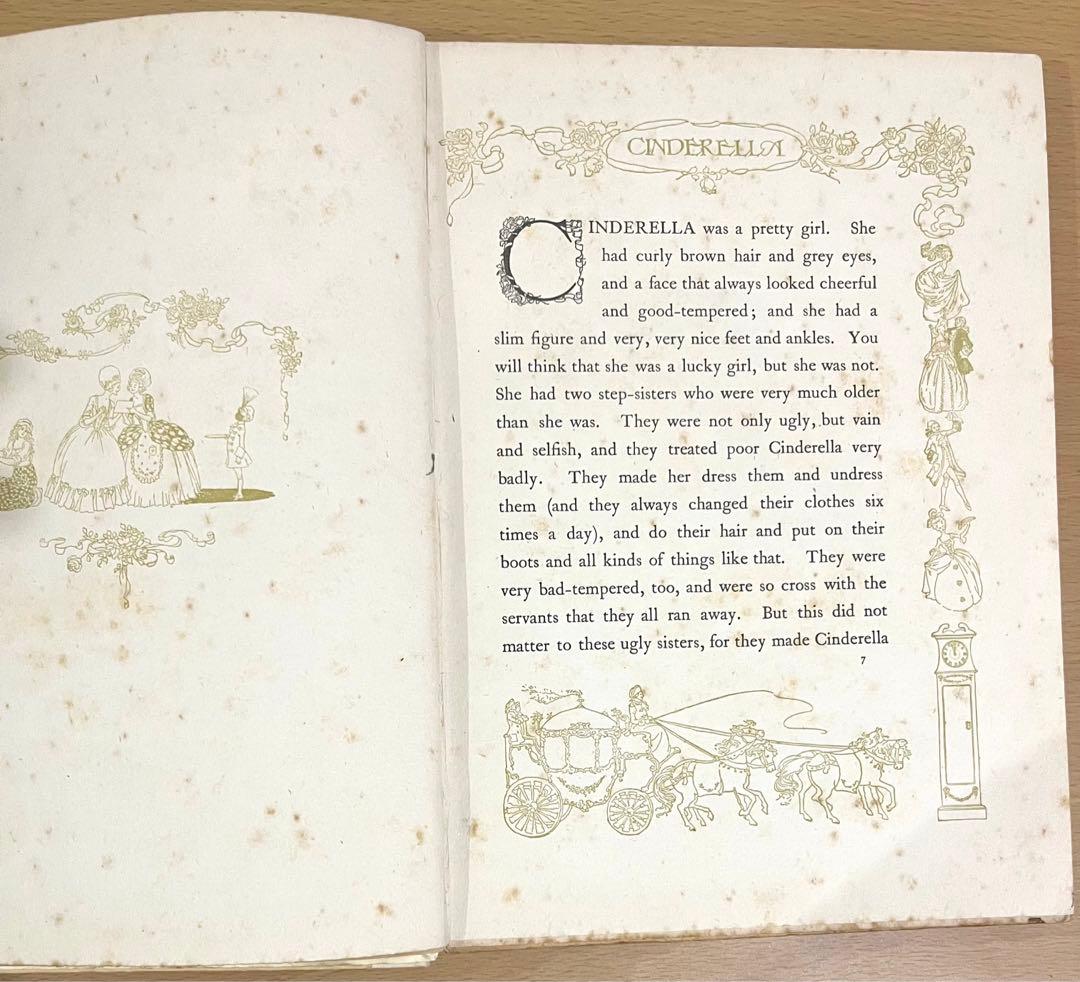 CINDERELLA
CINDERELLA was a pretty girl. She
had curly brown hair and grey eyes,
and a face that always looked cheerful
and good-tempered; and she had a
slim figure and very, very nice feet and ankles. You
will think that she was a lucky girl, but she was not.
She had two step-sisters who were very much older
than she was. They were not only ugly, but vain
and selfish, and they treated poor Cinderella very
badly. They made her dress them and undress
them (and they always changed their clothes six
times a day), and do their hair and put on their
boots and all kinds of things like that. They were
very bad-tempered, too, and were so cross with the
servants that they all ran away. But this did not
matter to these ugly sisters, for they made Cinderella
7